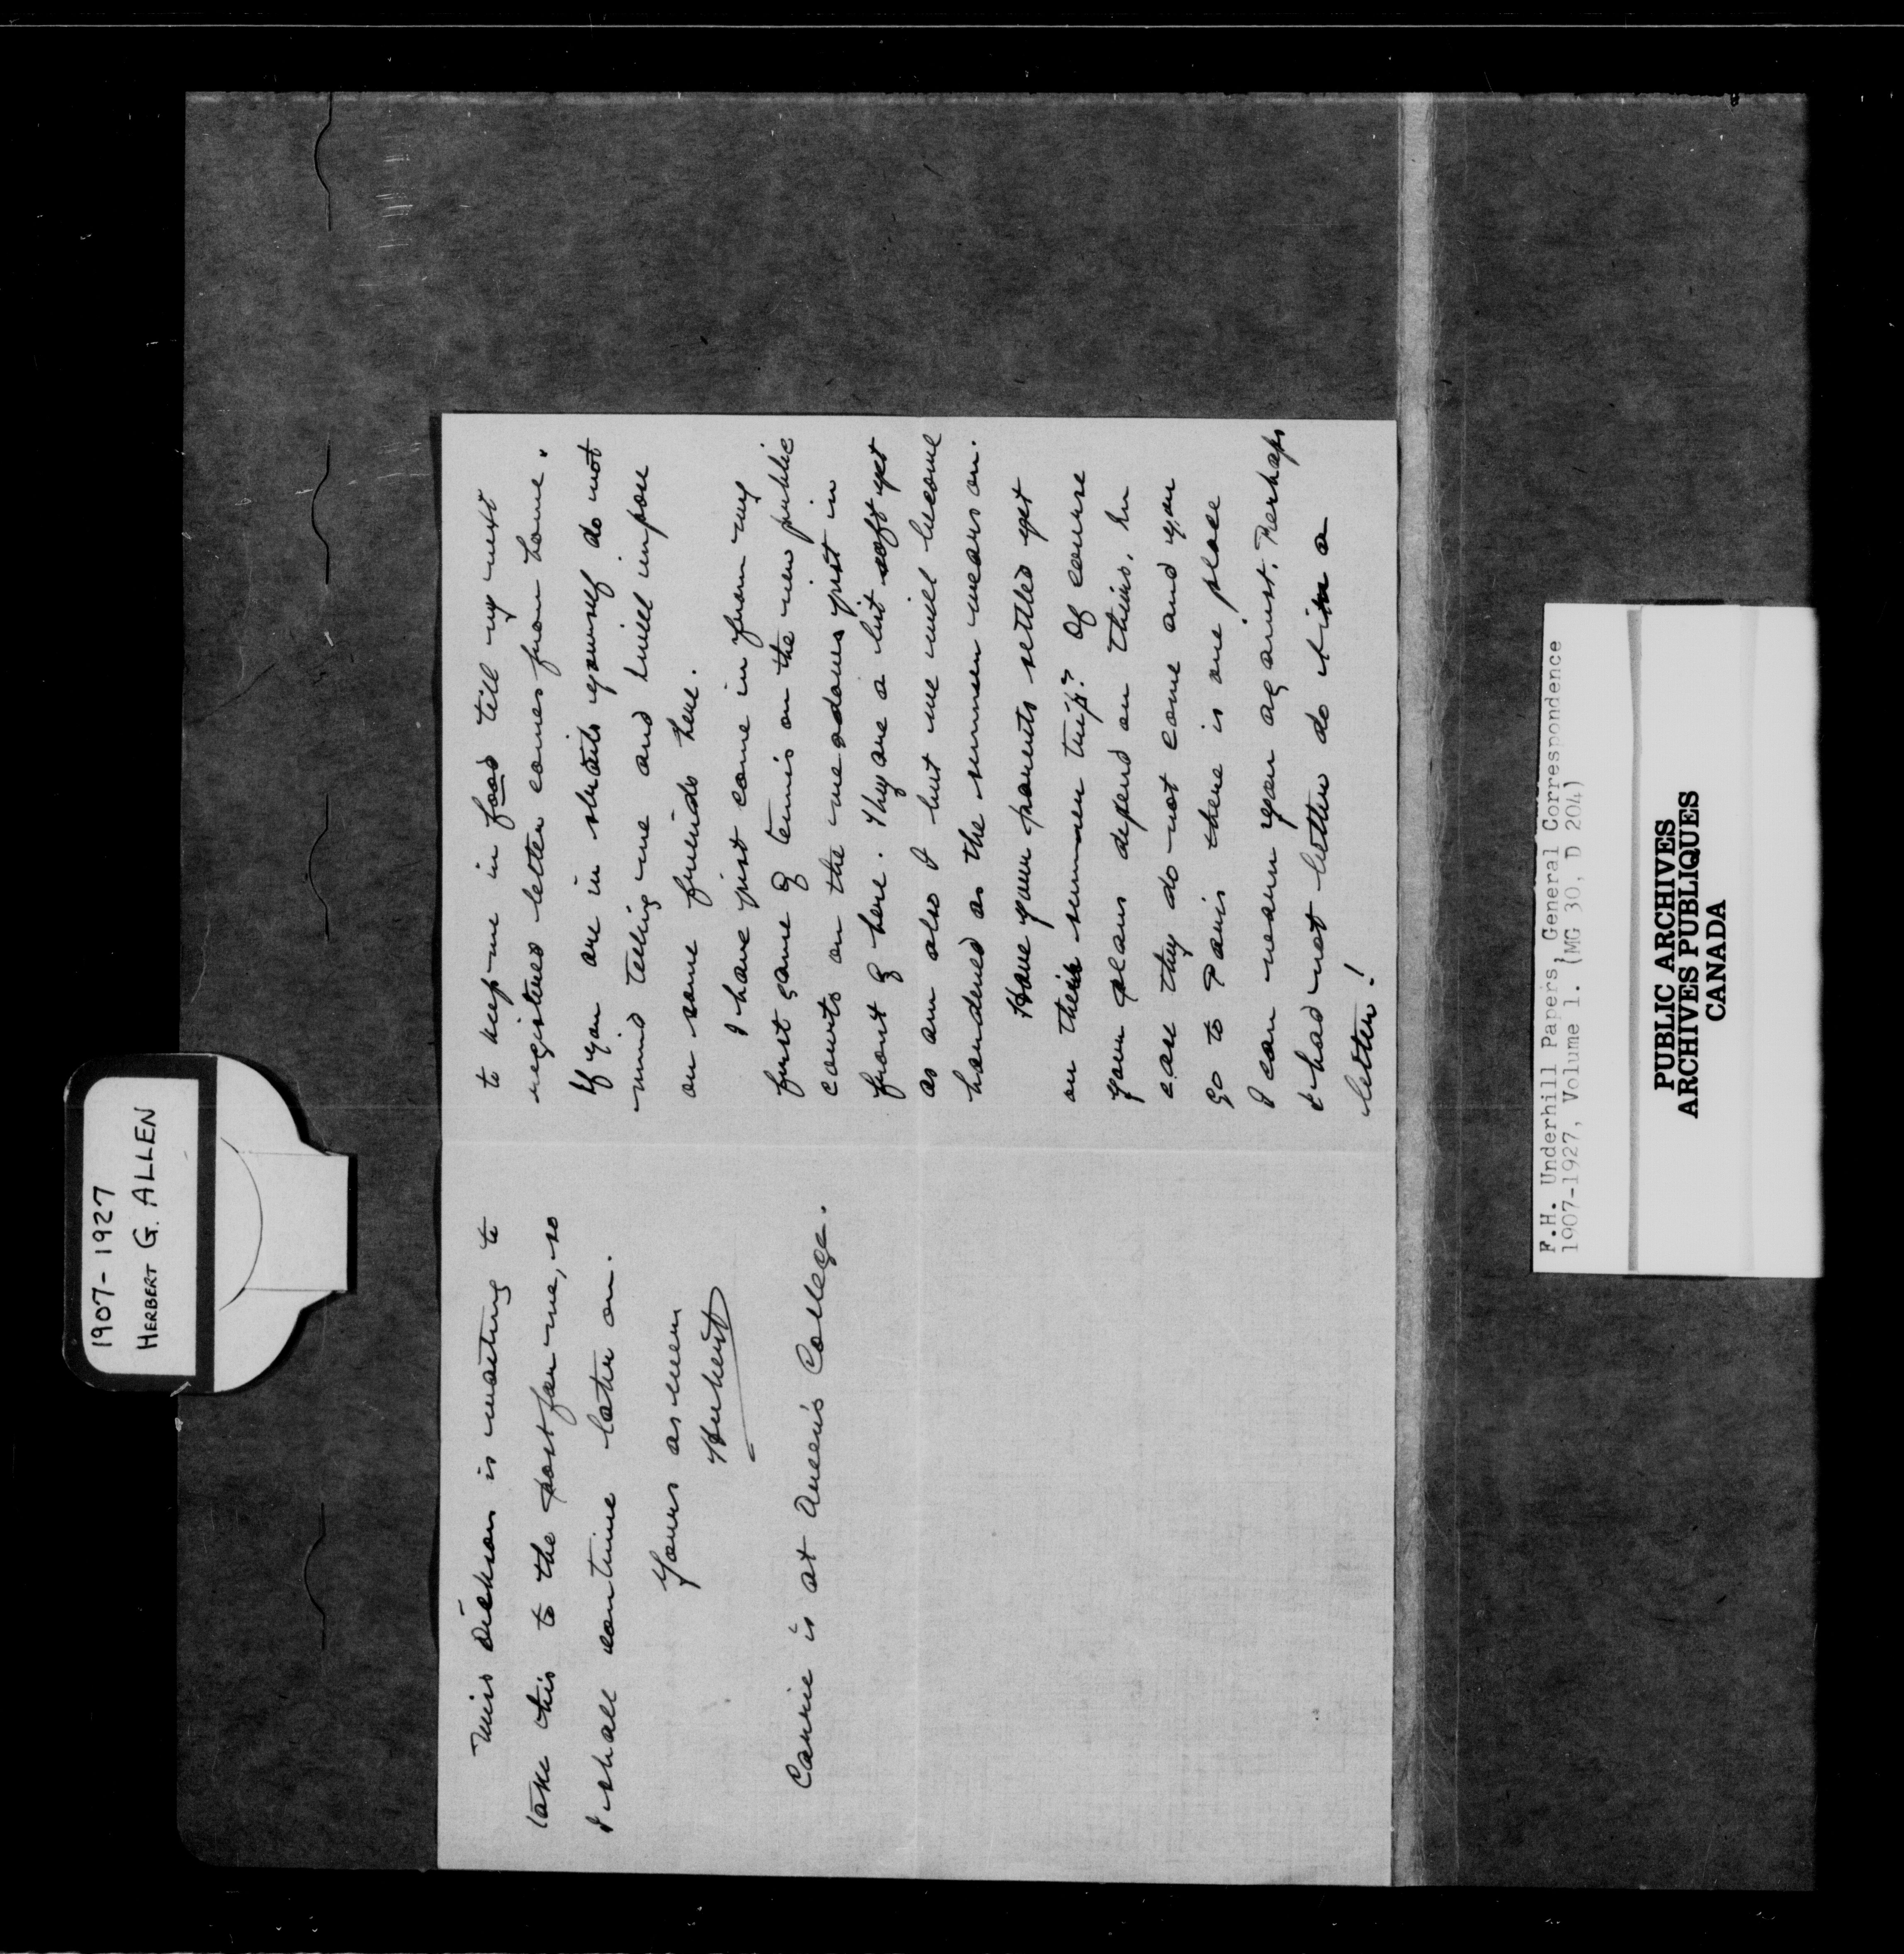 1907-1927
HERBERT G. ALLEN
to keep me in food till my next
registered letter comes from home.
If you are in straits yourself do not
mind telling me and I will impose
on some friends here.
I have just come in from my
first game of tennis on the new public
courts on the meadows just in
front of here. They are a bit soft yet
as am also I but we will become
hardened as the summer wears on.
Have your parents settled yet
on their summer trip? Of course
your plans depend on theirs. In
case they do not come and you
go to Paris there is one place
I can warn you against. Perhaps
I had not better do it in a
letter!
Miss Dickson is waiting to
take this to the post for me, so
I shall continue later on.
Yours as ever
Herbert
Carrie is at Queen's College.
F.H. Underhill Papers, General Correspondence
1907-1927, Volume 1. (MG 30, D 204)
PUBLIC ARCHIVES
ARCHIVES PUBLIQUES
CANADA